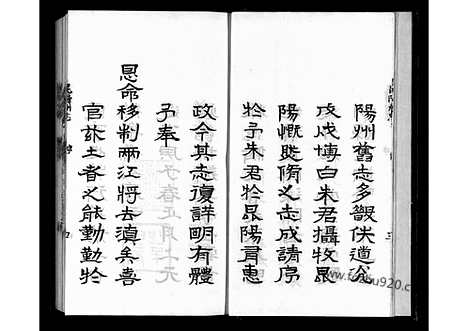 陽州舊志多毀佚道公
戊戌博白朱君攝牧昆
陽慨然脩之志成請序
於予朱君於昆陽有惠
政今其志復詳明有體
予奉
恩命移制兩江將去滇矣喜
官茲土者之能勤勤於
foshu920.com